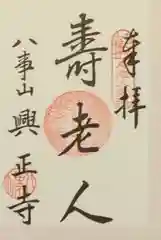 奉拜
壽老人
八事山興正寺